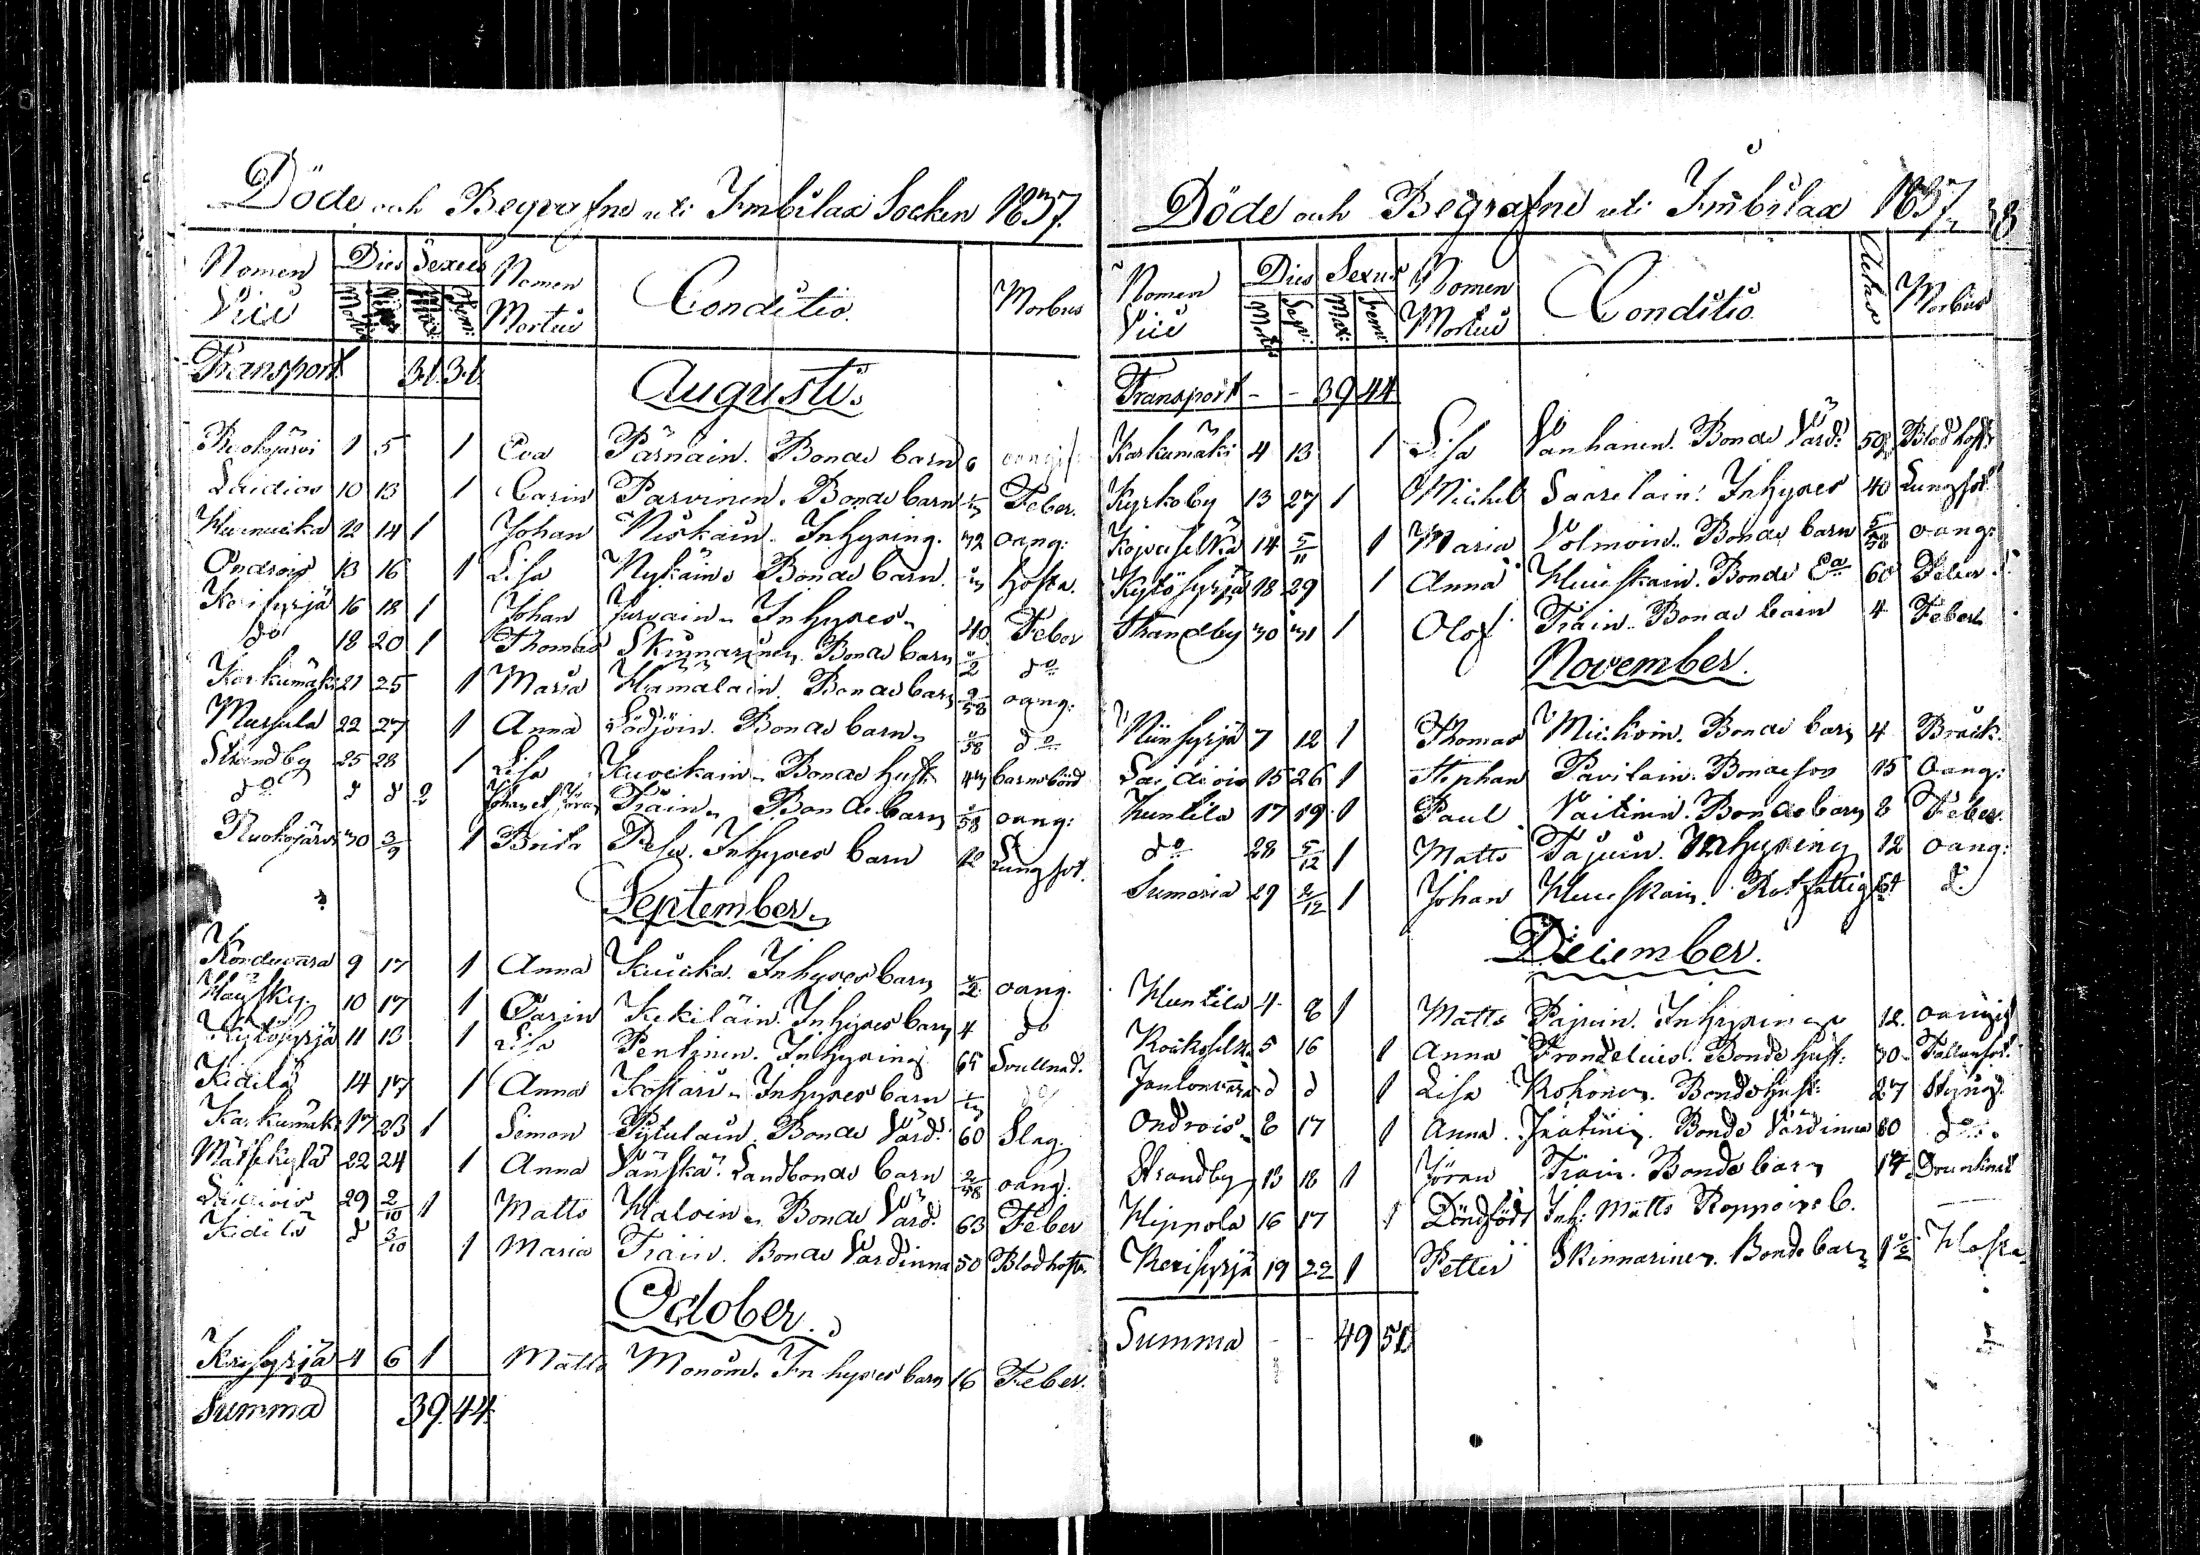 Döde och Begrafne uti Imbilax Socken 1837.
Nomen Vici Dies Mortis Sepul: Sexus Mas: Fem: Nomen Mortui Conditio. Morbus
Transport 31 31
Augusti.
Ruokojärvi 1 5 1 Eva Pärnäin. Bonde barn 6 oangif:
Laidion 10 13 1 Carin Parvinen. Bonde barn Feber.
12 14 1 Johan Niskain. Inhysing. 72 oang:
Ondrois 13 16 1 Lisa Nykäin. Bonde barn. hosta.
Kerisyrjä 16 18 1 Johan Jurvain. Inhyses. 40 Feber
do 18 20 1 Thomas Skinnarinen. Bonde barn do
Karkumäki 21 25 1 Maria Hämäläin. Bonde barn 2/58 oang:
Mursula 22 27 1 Anna Bonde barn. do
Strandby 25 28 1 Lisa Kuveikain. Bonde hust: 47 barnsbörd
do d d 2 Johan et Jöran Träin. Bonde barn oang:
Ruokojärvi 30 3/9 1 Brita Inhyses barn 12 Lungsot.
September.
Konduvara 9 17 1 Anna Kuicka. Inhyses barn oang.
10 17 1 Carin Kekiläin. Inhyses barn 4 do
Kytösyrjä 11 13 1 Lisa Pentinen. Inhysing 65 Svullnad.
Kidilä 14 17 1 Anna Inhyses barn do
Karkumäki 17 23 1 Simon Pytulain. Bonde Värd: 60 Slag.
Mätsekylä 22 24 1 Anna Landbonde barn 2/58 oang:
29 2/10 1 Matts Halvin. Bonde Värd: 63 Feber
Kidilä d 3/10 1 Maria Träin. Bonde Värdinna 50 Blodhosta
October.
Kerisyrjä 4 6 1 Matts Monoin. Inhyses barn 16 Feber.
Summa 39 44
Döde och Begrafne uti Imbilax 1837.
38
Nomen Vici Dies Mortis Sepul: Sexus Mas: Fem: Nomen Mortui Conditio. Aetas Morbus
Transport - - 39 44
Karkumäki 4 13 1 Lisa Vanhanen. Bonde Värd: 59 Blodhosta
Kyrkoby 13 27 1 Michel Saarelain. Inhyses 40 Lungsot
Koivuselkä 14 5/11 1 Maria Volmoin. Bonde barn 5/58 oang:
Kytösyrjä 18 29 1 Anna Huuskain. Bonde Ea 60 Feber.
Strandby 30 31 1 Olof Träin. Bonde barn 4 Feber
November.
Niinisyrjä 7 12 1 Thomas Mickoin. Bonde barn 4 Bråck.
15 26 1 Stephan Pavilain. Bondeson 15 Oang:
Huntila 17 19 1 Paul Väitinen. Bonde barn 8 Feber.
do 28 5/12 1 Matts Pajuin. Inhysing 12 oang:
Sumeria 29 2/12 1 Johan Huuskain. Rotfattig d.
December.
Huntila 4 8 1 Matts Pajuin. Inhysing 12. oangif
Koukoselkä 5 16 1 Anna Frondelius. Bonde hust: 30 Fallansot.
Jänkonvaara d d 1 Lisa Kokonen. Bonde hust: 27 Styng.
Ondrois 8 17 1 Anna. Bonde Värdinna 80 do
Strandby 13 18 1 Jöran Träin. Bonde barn 14 Drunknat
Hippola 16 17 1 Dödfödt Inh: Matts Roppoins b. —
Kerisyrjä 19 22 1 Petter Skinnarinen. Bonde barn Hosta
Summa - - 49 51